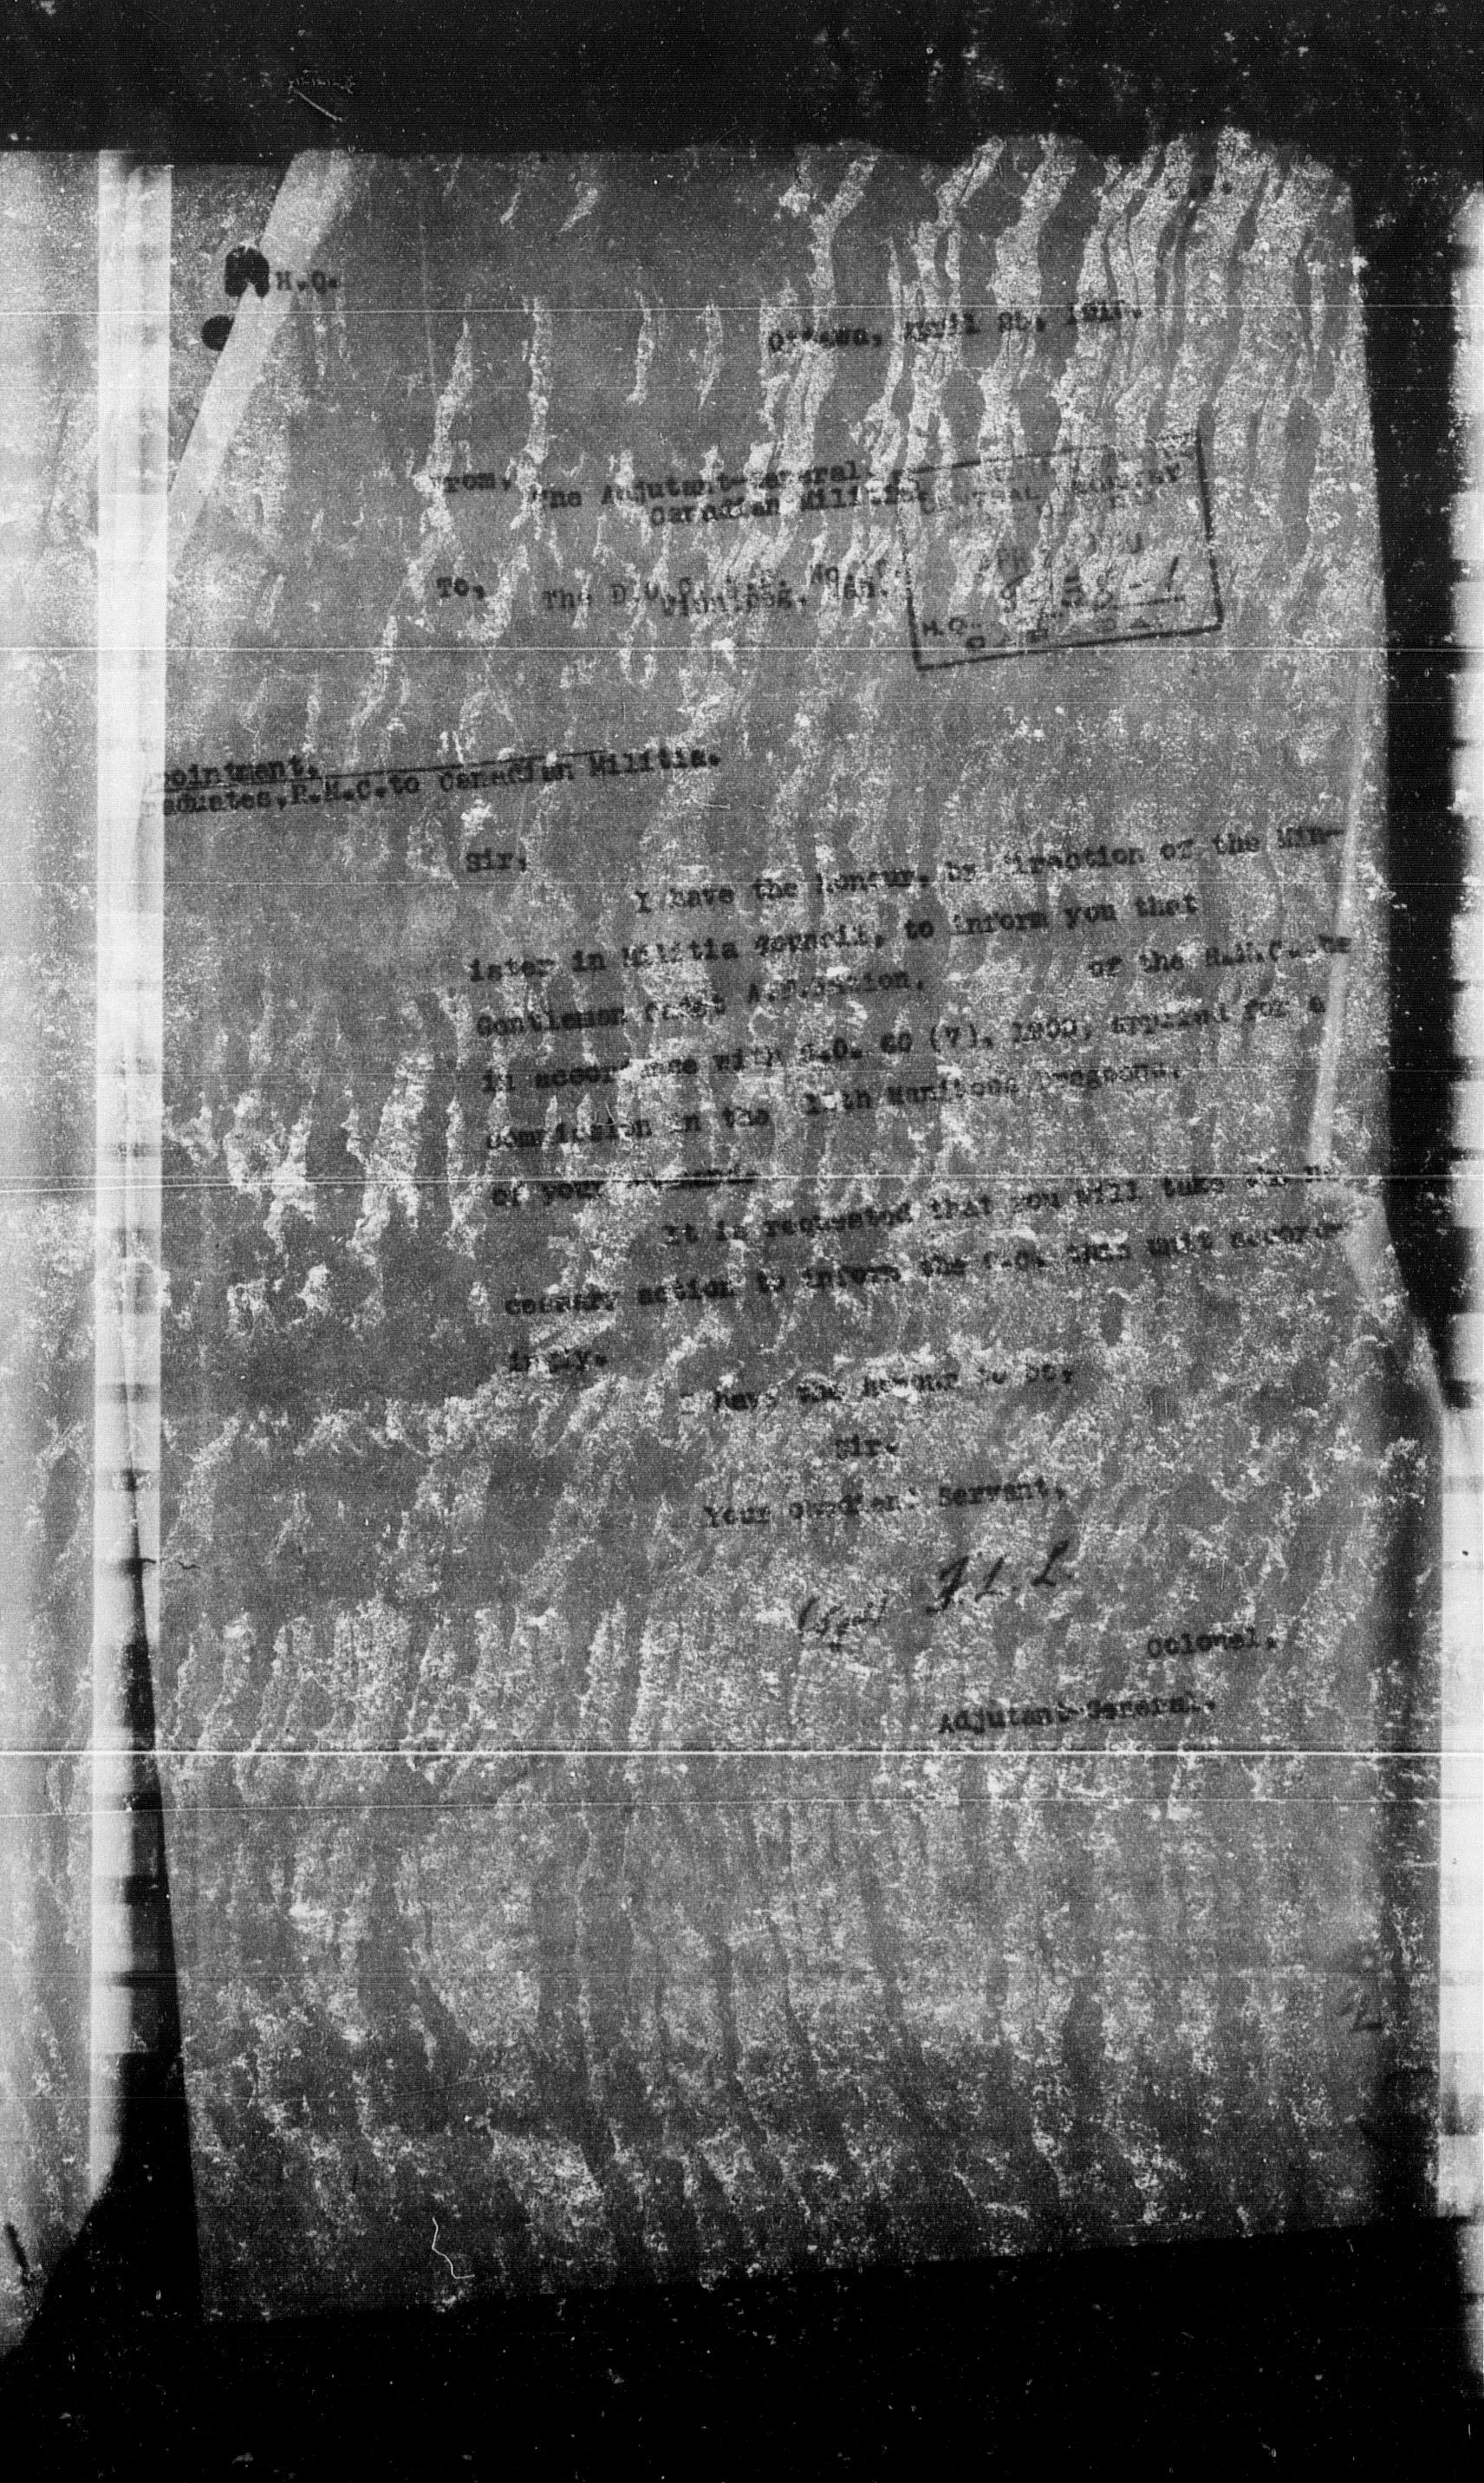 H.Q.
Ottawa, April
From, The Adjutant-General,
Canadian Militia.
To, The D.O.C.
Winnipeg, Man.
CENTRAL REGISTRY
H.Q.
pointment.
aduates, R.M.C. to Canadian Militia.
Sir,
I have the honour, by direction of the Min-
ister in Militia Council, to inform you that
Gentleman Cadet of the R.M.C. has
in accordance with G.O. 60 (7), applied for a
commission in the Manitoba Dragoons,
of your command.
It is requested that you will take the ne-
cessary action to inform the C.O. this unit accord-
ingly.
I have the honour to be,
Sir,
Your obedient Servant,
(Sgd) F.L.L.
Colonel,
Adjutant-General.